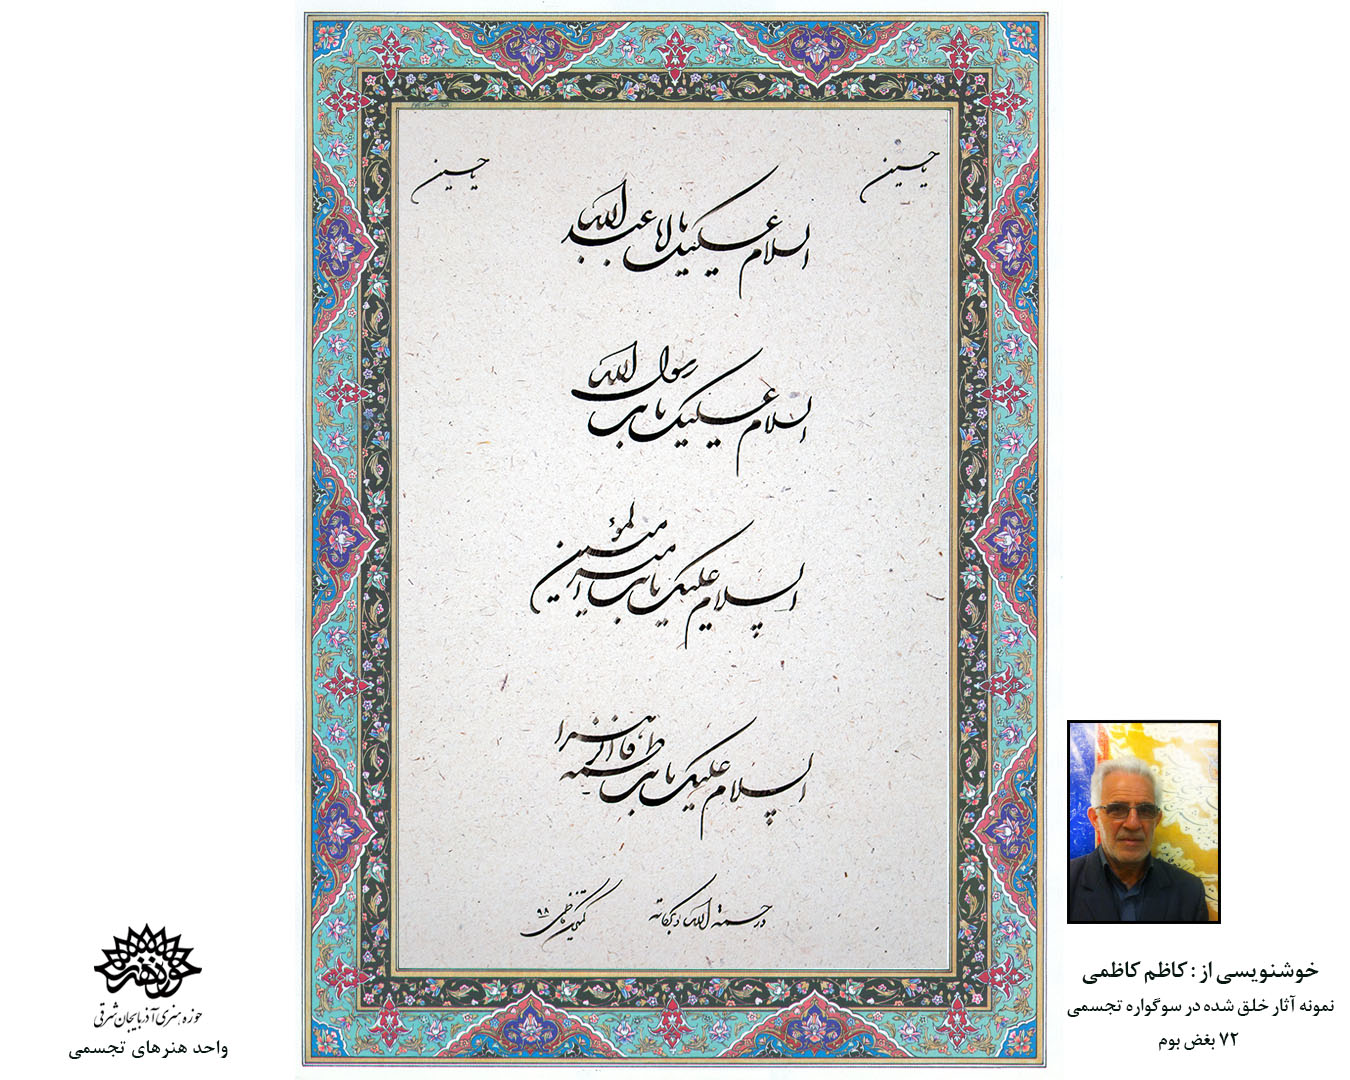 یا حسین
یا حسین
السلام علیک یا ابا عبد الله
السلام علیک یابن رسول الله
السلام علیک یابن امیر المؤمنین
السلام علیک یابن فاطمه الزهرا
و رحمة الله و برکاته
کاظمی ۹۸
خوشنویسی از : کاظم کاظمی
نمونه آثار خلق شده در سوگواره تجسمی
۷۲ بغض بوم
حوزه هنری
حوزه هنری آذربایجان شرقی
واحد هنرهای تجسمی